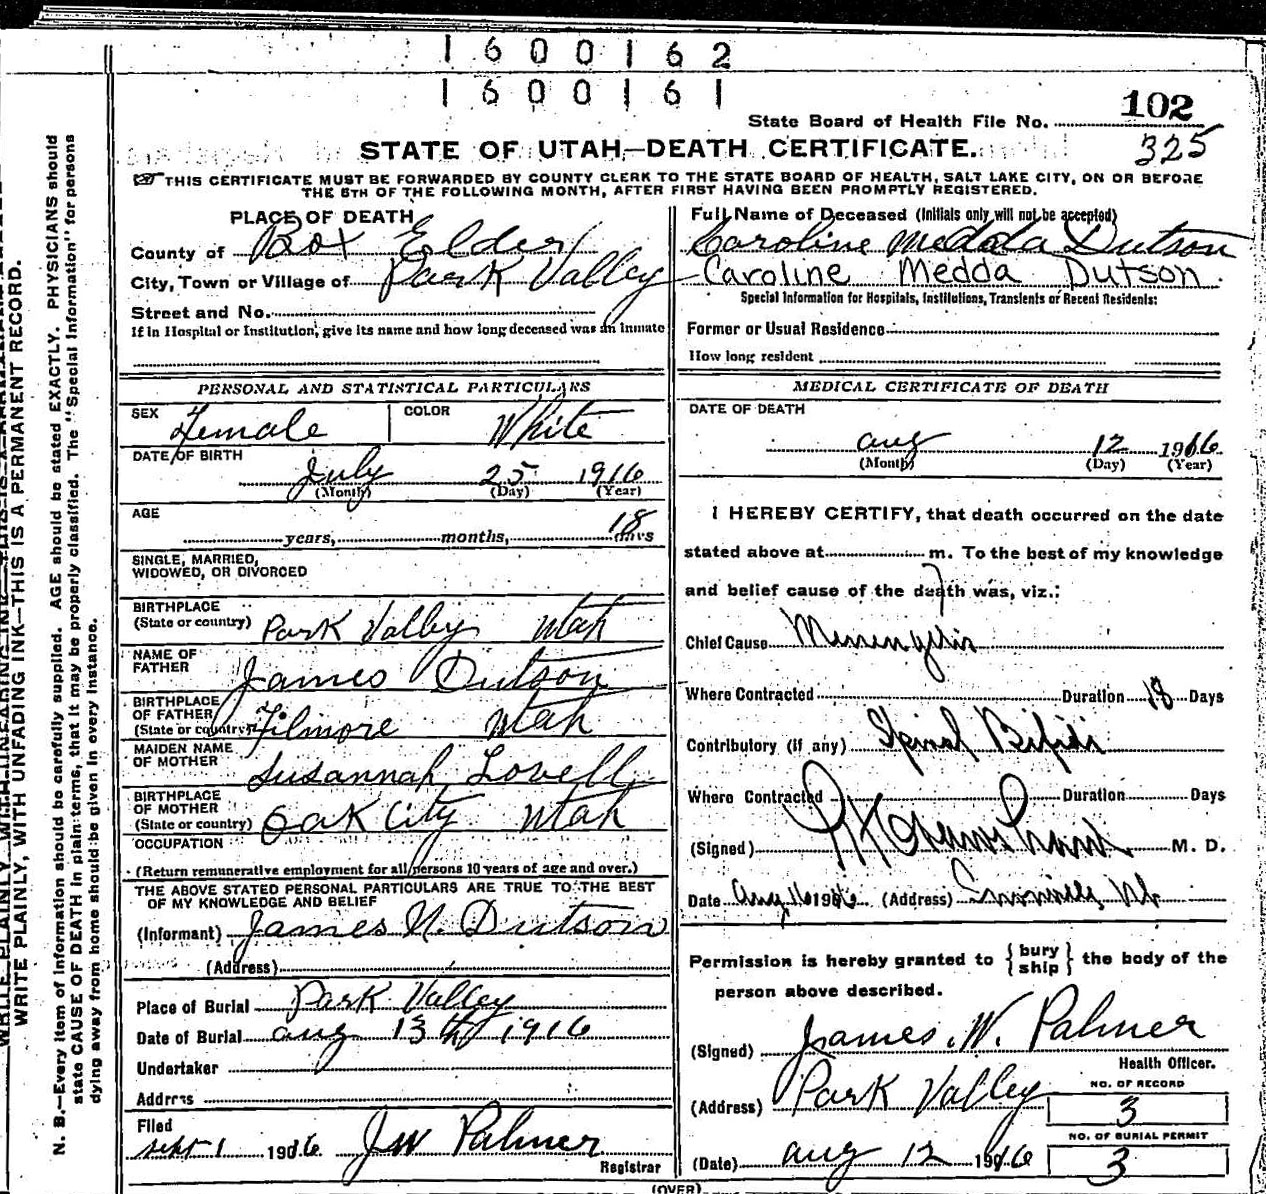 1600162
1600161
State Board of Health File No. 102
325
STATE OF UTAH—DEATH CERTIFICATE.
THIS CERTIFICATE MUST BE FORWARDED BY COUNTY CLERK TO THE STATE BOARD OF HEALTH, SALT LAKE CITY, ON OR BEFORE
THE 5TH OF THE FOLLOWING MONTH, AFTER FIRST HAVING BEEN PROMPTLY REGISTERED.
WRITE PLAINLY, WITH UNFADING INK—THIS IS A PERMANENT RECORD.
N. B.—Every item of information should be carefully supplied. AGE should be stated EXACTLY. PHYSICIANS should
state CAUSE OF DEATH in plain terms, that it may be properly classified. The "Special Information" for persons
dying away from home should be given in every instance.
PLACE OF DEATH
County of Box Elder
City, Town or Village of Park Valley
Street and No.
If in Hospital or Institution, give its name and how long deceased was an inmate
PERSONAL AND STATISTICAL PARTICULARS
SEX Female COLOR White
DATE OF BIRTH
July 25 1916
(Month) (Day) (Year)
AGE
years, months, 18 days
SINGLE, MARRIED,
WIDOWED, OR DIVORCED
BIRTHPLACE
(State or country) Park Valley Utah
NAME OF
FATHER James Dutson
BIRTHPLACE
OF FATHER
(State or country) Filmore Utah
MAIDEN NAME
OF MOTHER Susannah Lovell
BIRTHPLACE
OF MOTHER
(State or country) Oak City Utah
OCCUPATION
(Return remunerative employment for all persons 10 years of age and over.)
THE ABOVE STATED PERSONAL PARTICULARS ARE TRUE TO THE BEST
OF MY KNOWLEDGE AND BELIEF
(Informant) James N. Dutson
(Address)
Place of Burial Park Valley
Date of Burial aug 13th 1916
Undertaker
Address
Filed
sept 1 1916 JW Palmer
Registrar
(OVER)
Full Name of Deceased (Initials only will not be accepted)
Caroline Medda Dutson
Caroline Medda Dutson
Special Information for Hospitals, Institutions, Transients or Recent Residents:
Former or Usual Residence
How long resident
MEDICAL CERTIFICATE OF DEATH
DATE OF DEATH
aug 12 1916
(Month) (Day) (Year)
I HEREBY CERTIFY, that death occurred on the date
stated above at m. To the best of my knowledge
and belief cause of the death was, viz.:
Chief Cause Meningitis
Where Contracted Duration 18 Days
Contributory (if any) Spinal Bifida
Where Contracted Duration Days
(Signed) M. D.
Date Aug 16 1916 (Address)
Permission is hereby granted to { bury ship } the body of the
person above described.
(Signed) James W. Palmer
Health Officer.
(Address) Park Valley
NO. OF RECORD
3
NO. OF BURIAL PERMIT
3
(Date) aug 12 1916